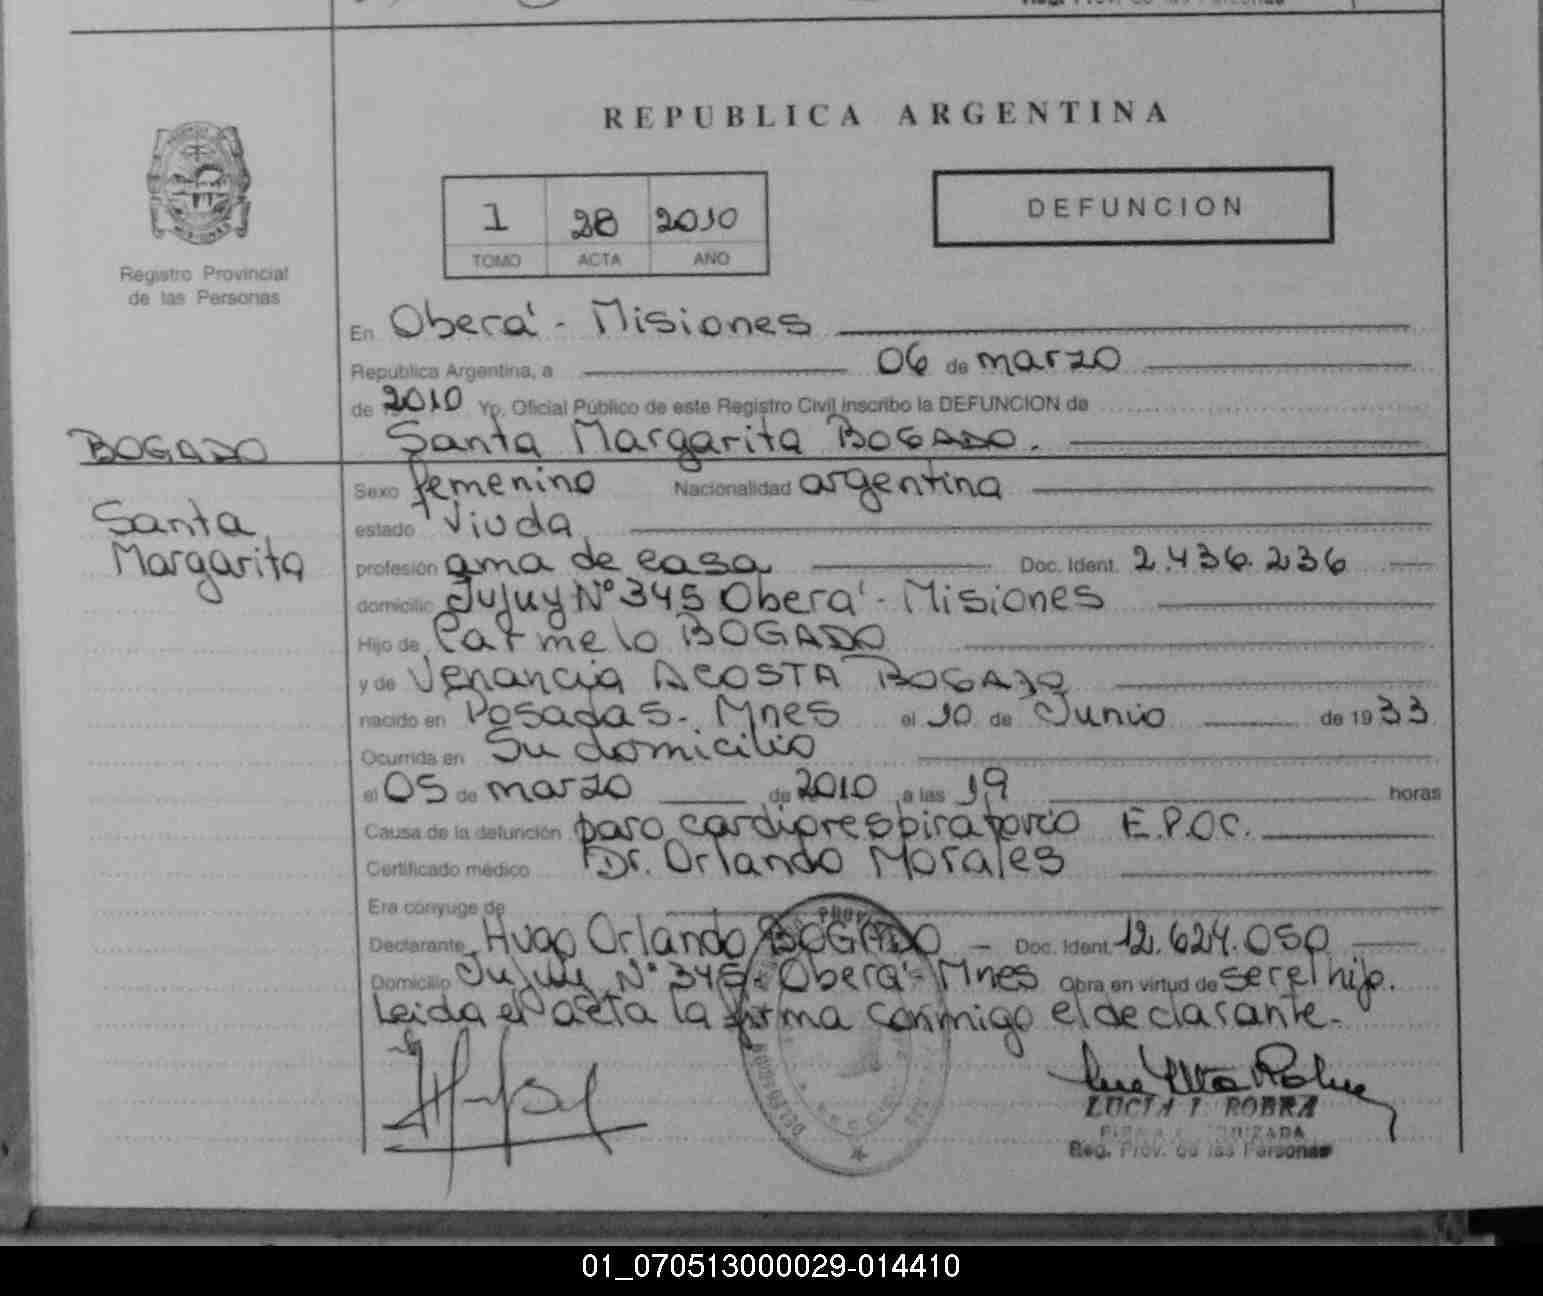 REPUBLICA ARGENTINA
1 28 2010
TOMO ACTA AÑO
DEFUNCION
Registro Provincial
de las Personas
En Oberá - Misiones
Republica Argentina, a 06 de marzo
de 2010 Yo, Oficial Público de este Registro Civil inscribo la DEFUNCION de
Santa Margarita BOGADO.
BOGADO
Santa
Margarita
Sexo femenino Nacionalidad argentina
estado Viuda
profesión ama de casa Doc. Ident. 2.436.236
domicilio Jujuy Nº 345 Oberá - Misiones
Hijo de Carmelo BOGADO
y de Venancia ACOSTA BOGADO
nacido en Posadas - Mnes el 10 de Junio de 1933
Ocurrida en Su domicilio
el 05 de marzo de 2010 a las 19 horas
Causa de la defunción paro cardiorespiratorio E.P.O.C.
Certificado médico Dr. Orlando Morales
Era cónyuge de
Declarante Hugo Orlando BOGADO - Doc. Ident. 12.624.050
Domicilio Jujuy Nº 345 - Oberá - Mnes Obra en virtud de ser el hijo.
Leida el acta la firma conmigo el declarante.
LUCIA I. ROBRA
Reg. Prov. de las Personas
01_070513000029-014410